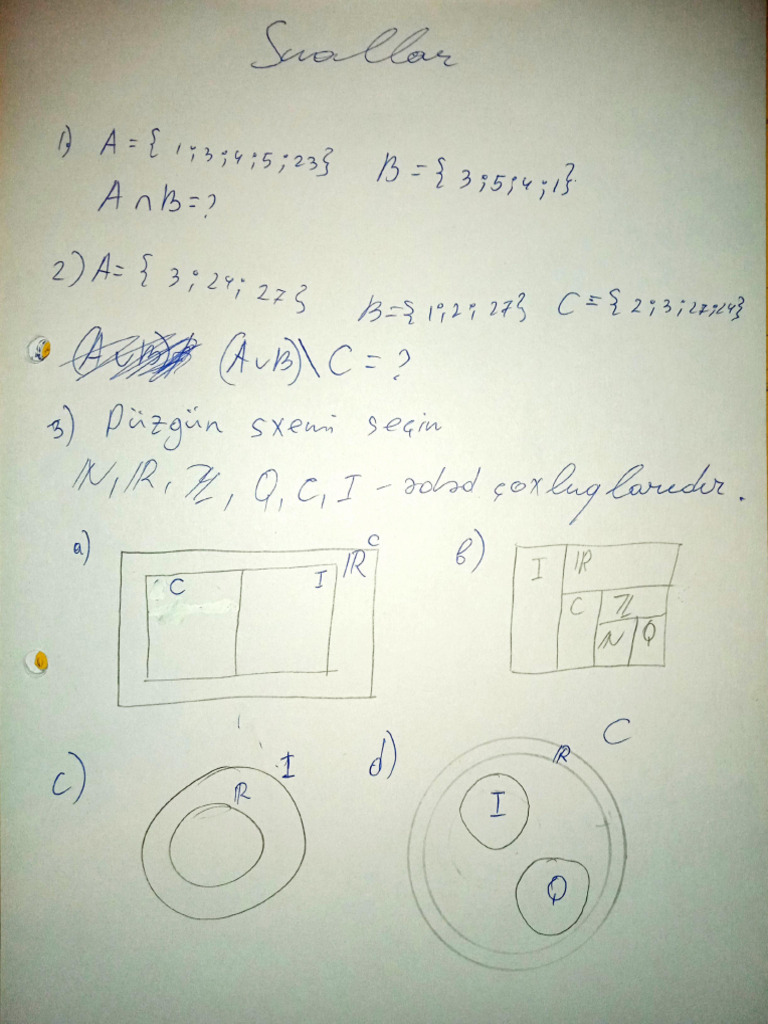 Suallar
1) A = { 1; 3; 4; 5; 23} B = { 3; 5; 4; 1}
A ∩ B = ?
2) A = { 3; 24; 27} B = {1; 2; 27} C = { 2; 3; 27; 24}
(A ∪ B) \ C = ?
3) Düzgün sxemi seçin
ℕ, ℝ, ℤ, Q, C, I – ədəd çoxluqlarıdır.
a) C
ℝ
C I
b) I ℝ
C ℤ
ℕ Q
c) I
R
d) C
R
I
Q